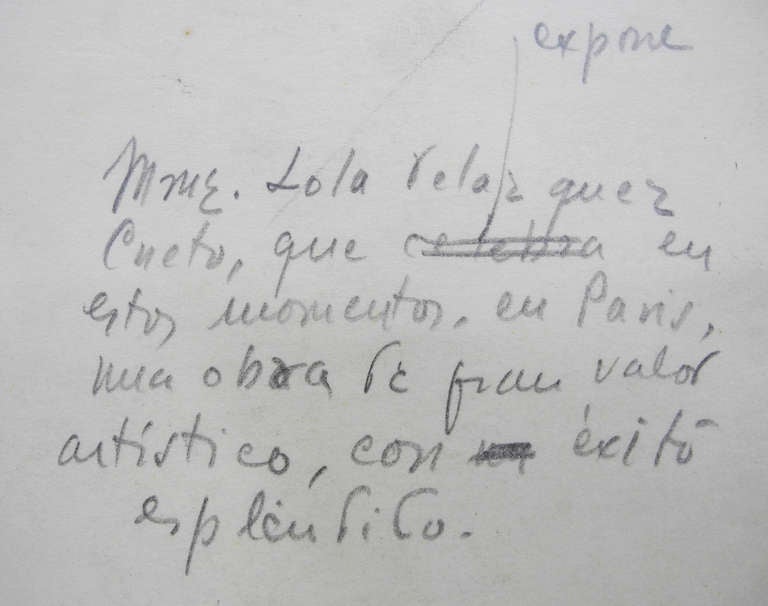 expone
Mme. Lola Velazquez
Cueto, que celebra en
estos momentos, en Paris,
una obra de gran valor
artístico, con éxito
espléndido.